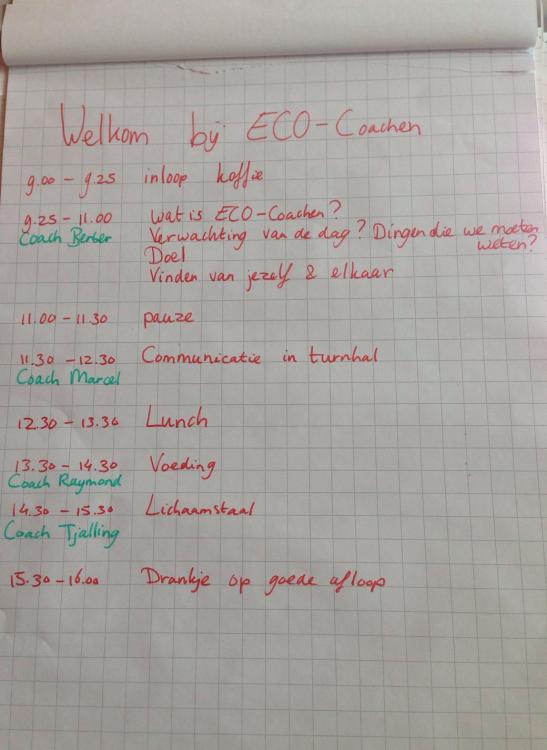 Welkom bij ECO-Coachen
9.00 - 9.25 inloop koffie
9.25 - 11.00 wat is ECO-Coachen?
Coach Berber Verwachting van de dag? Dingen die we moeten weten?
Doel
Vinden van jezelf & elkaar
11.00 - 11.30 pauze
11.30 - 12.30 Communicatie in turnhal
Coach Marcel
12.30 - 13.30 Lunch
13.30 - 14.30 Voeding
Coach Raymond
14.30 - 15.30 Lichaamstaal
Coach Tjalling
15.30 - 16.00 Drankje op goede afloop